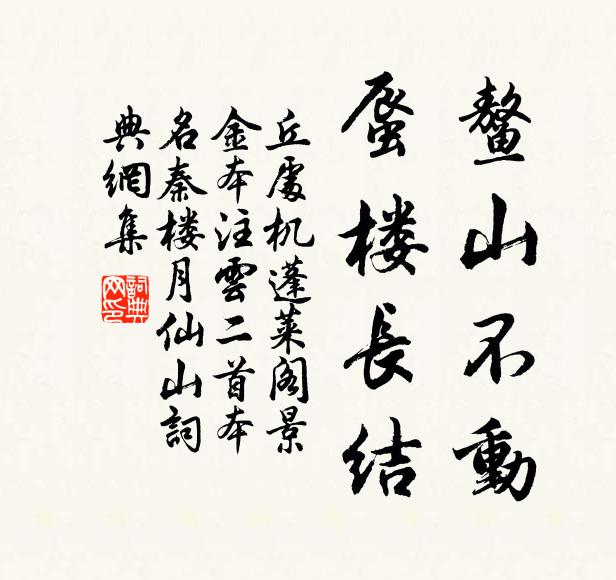 鰲山不動
蜃楼長結
丘處机蓬莱阁景
金本注雲二首本
名秦楼月仙山詞
典網集
詞典網印